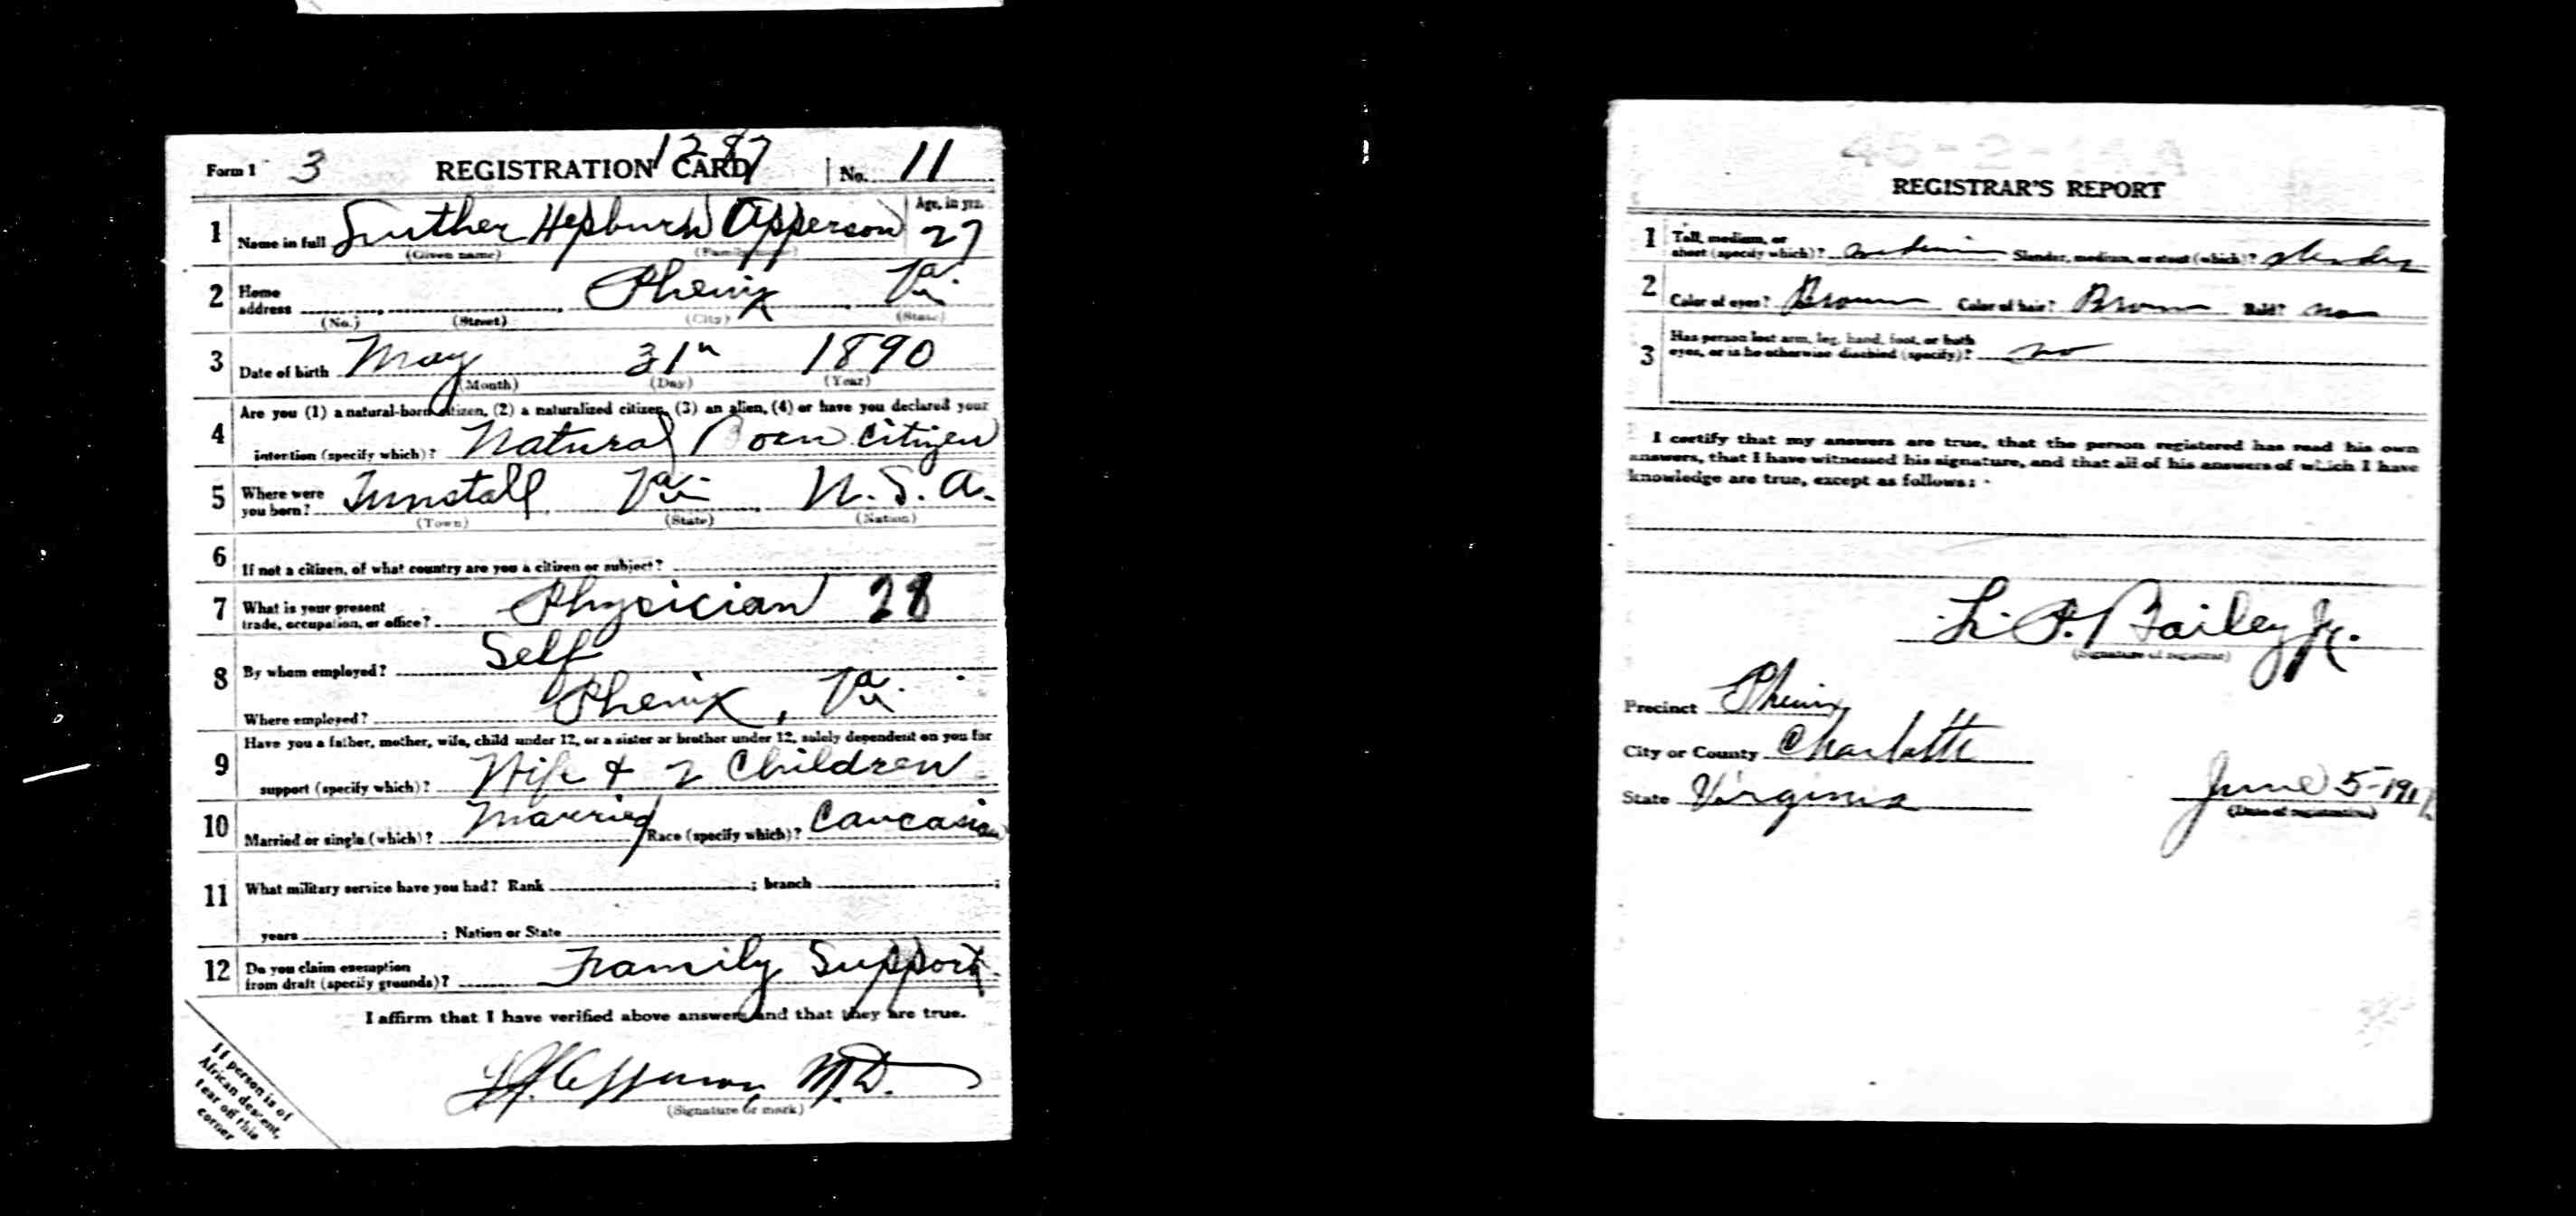 1287
Form 1 3 REGISTRATION CARD No. 11
1 Name in full Luther Hepburn Apperson Age, in yrs. 27
(Given name) (Family name)
2 Home address Phenix Va.
(No.) (Street) (City) (State)
3 Date of birth May 31" 1890
(Month) (Day) (Year)
4 Are you (1) a natural-born citizen, (2) a naturalized citizen, (3) an alien, (4) or have you declared your
intention (specify which)? Natural Born Citizen
5 Where were you born? Tunstall Va. U.S.A.
(Town) (State) (Nation)
6 If not a citizen, of what country are you a citizen or subject?
7 What is your present trade, occupation, or office? Physician 28
8 By whom employed? Self
Where employed? Phenix, Va.
9 Have you a father, mother, wife, child under 12, or a sister or brother under 12, solely dependent on you for
support (specify which)? Wife & 2 Children
10 Married or single (which)? Married Race (specify which)? Caucasian
11 What military service have you had? Rank ; branch ;
years ; Nation or State
12 Do you claim exemption from draft (specify grounds)? Family Support
I affirm that I have verified above answers and that they are true.
L H Apperson, M.D.
(Signature or mark)
If person is of
African descent,
tear off this
corner
45-2-14 A
REGISTRAR'S REPORT
1 Tall, medium, or short (specify which)? medium Slender, medium, or stout (which)? slender
2 Color of eyes? Brown Color of hair? Brown Bald? no
3 Has person lost arm, leg, hand, foot, or both
eyes, or is he otherwise disabled (specify)? no
I certify that my answers are true, that the person registered has read his own
answers, that I have witnessed his signature, and that all of his answers of which I have
knowledge are true, except as follows:
L. P. Bailey Jr.
(Signature of registrar)
Precinct Phenix
City or County Charlotte
State Virginia June 5-1917
(Date of registration)